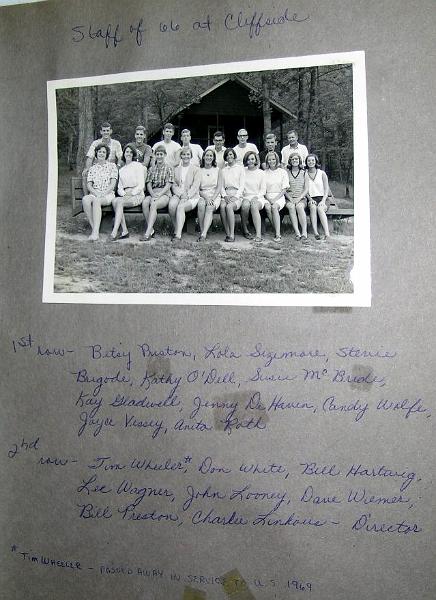 Staff of 66 at Cliffside
1st row - Betsy Preston, Lola Sizemore, Stevie
Brigode, Kathy O'Dell, Susie McBride,
Kay Gladwell, Jenny De Haven, Candy Wolfe,
Joyce Vissey, Anita Roth
2nd row - Tim Wheeler*, Don White, Bill Hartwig,
Lee Wagner, John Looney, Dave Wiemer,
Bill Preston, Charlie Linkous - Director
* Tim Wheeler - passed away in service to U.S. 1969